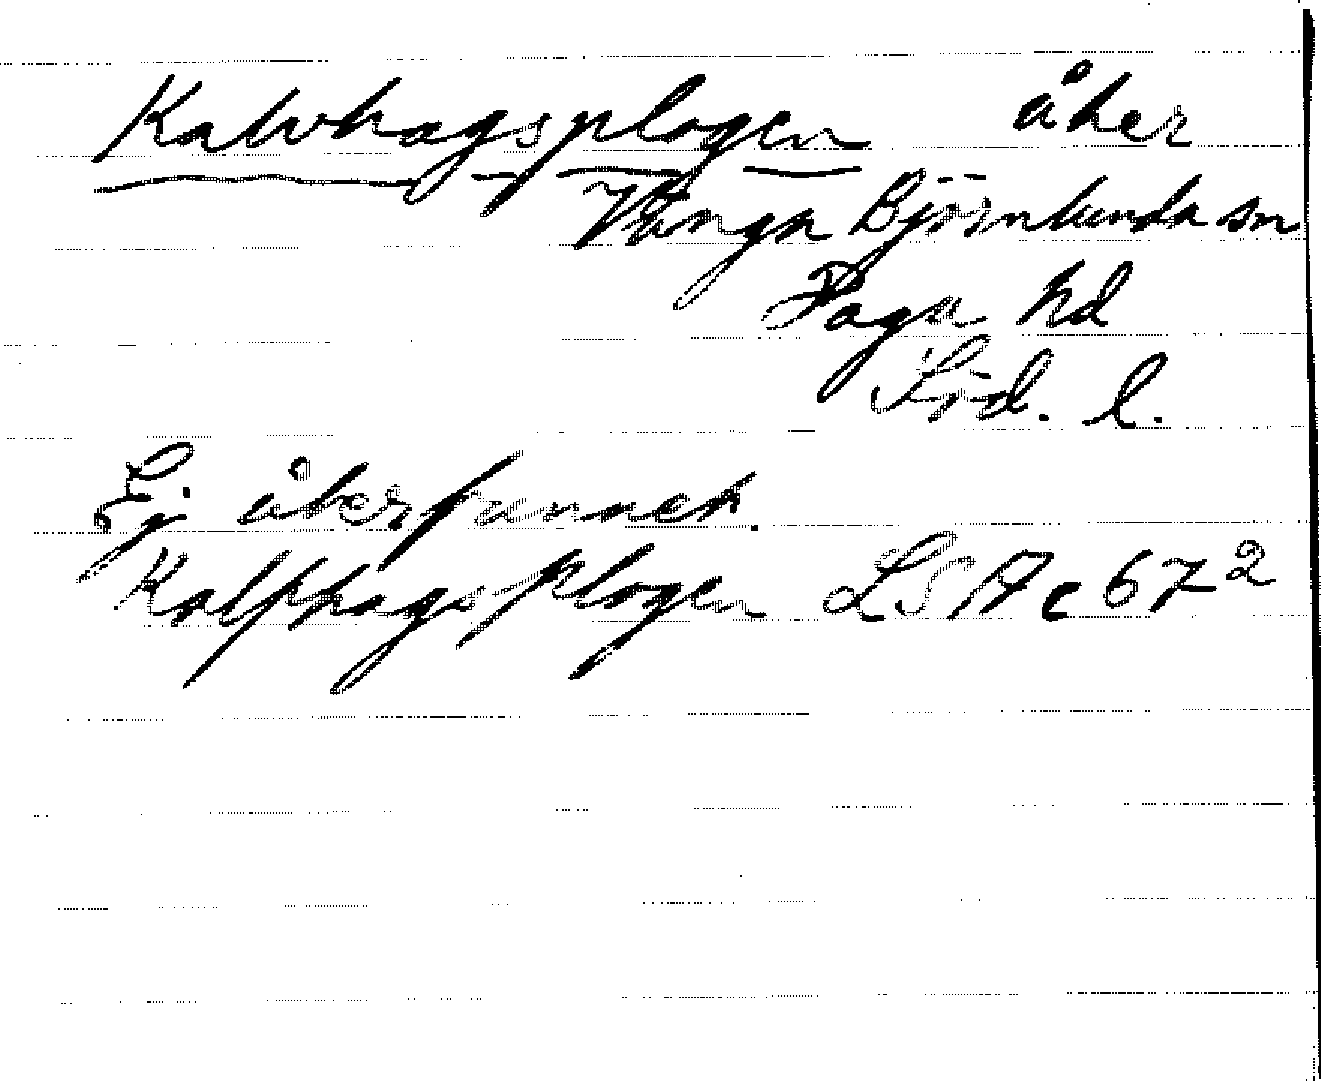 Kalvhagsplogen åker
Vänga Björnlunda sn
Daga hd
Söd. l.
Ej återfunnen.
Kalfhagsplogen LSA c 67²